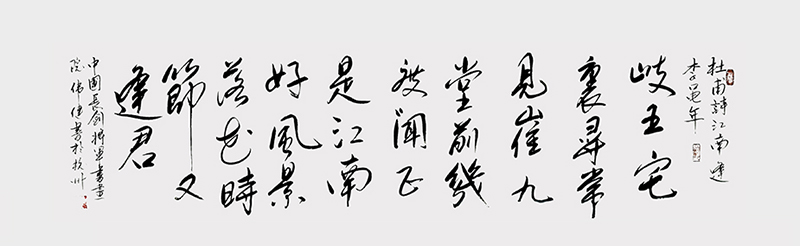 杜甫詩江南逢
李龜年
岐王宅
裏尋常
見崔九
堂前幾
度聞正
是江南
好風景
落花時
節又
逢君
中國長劍将軍書畫
院偉書於杭州